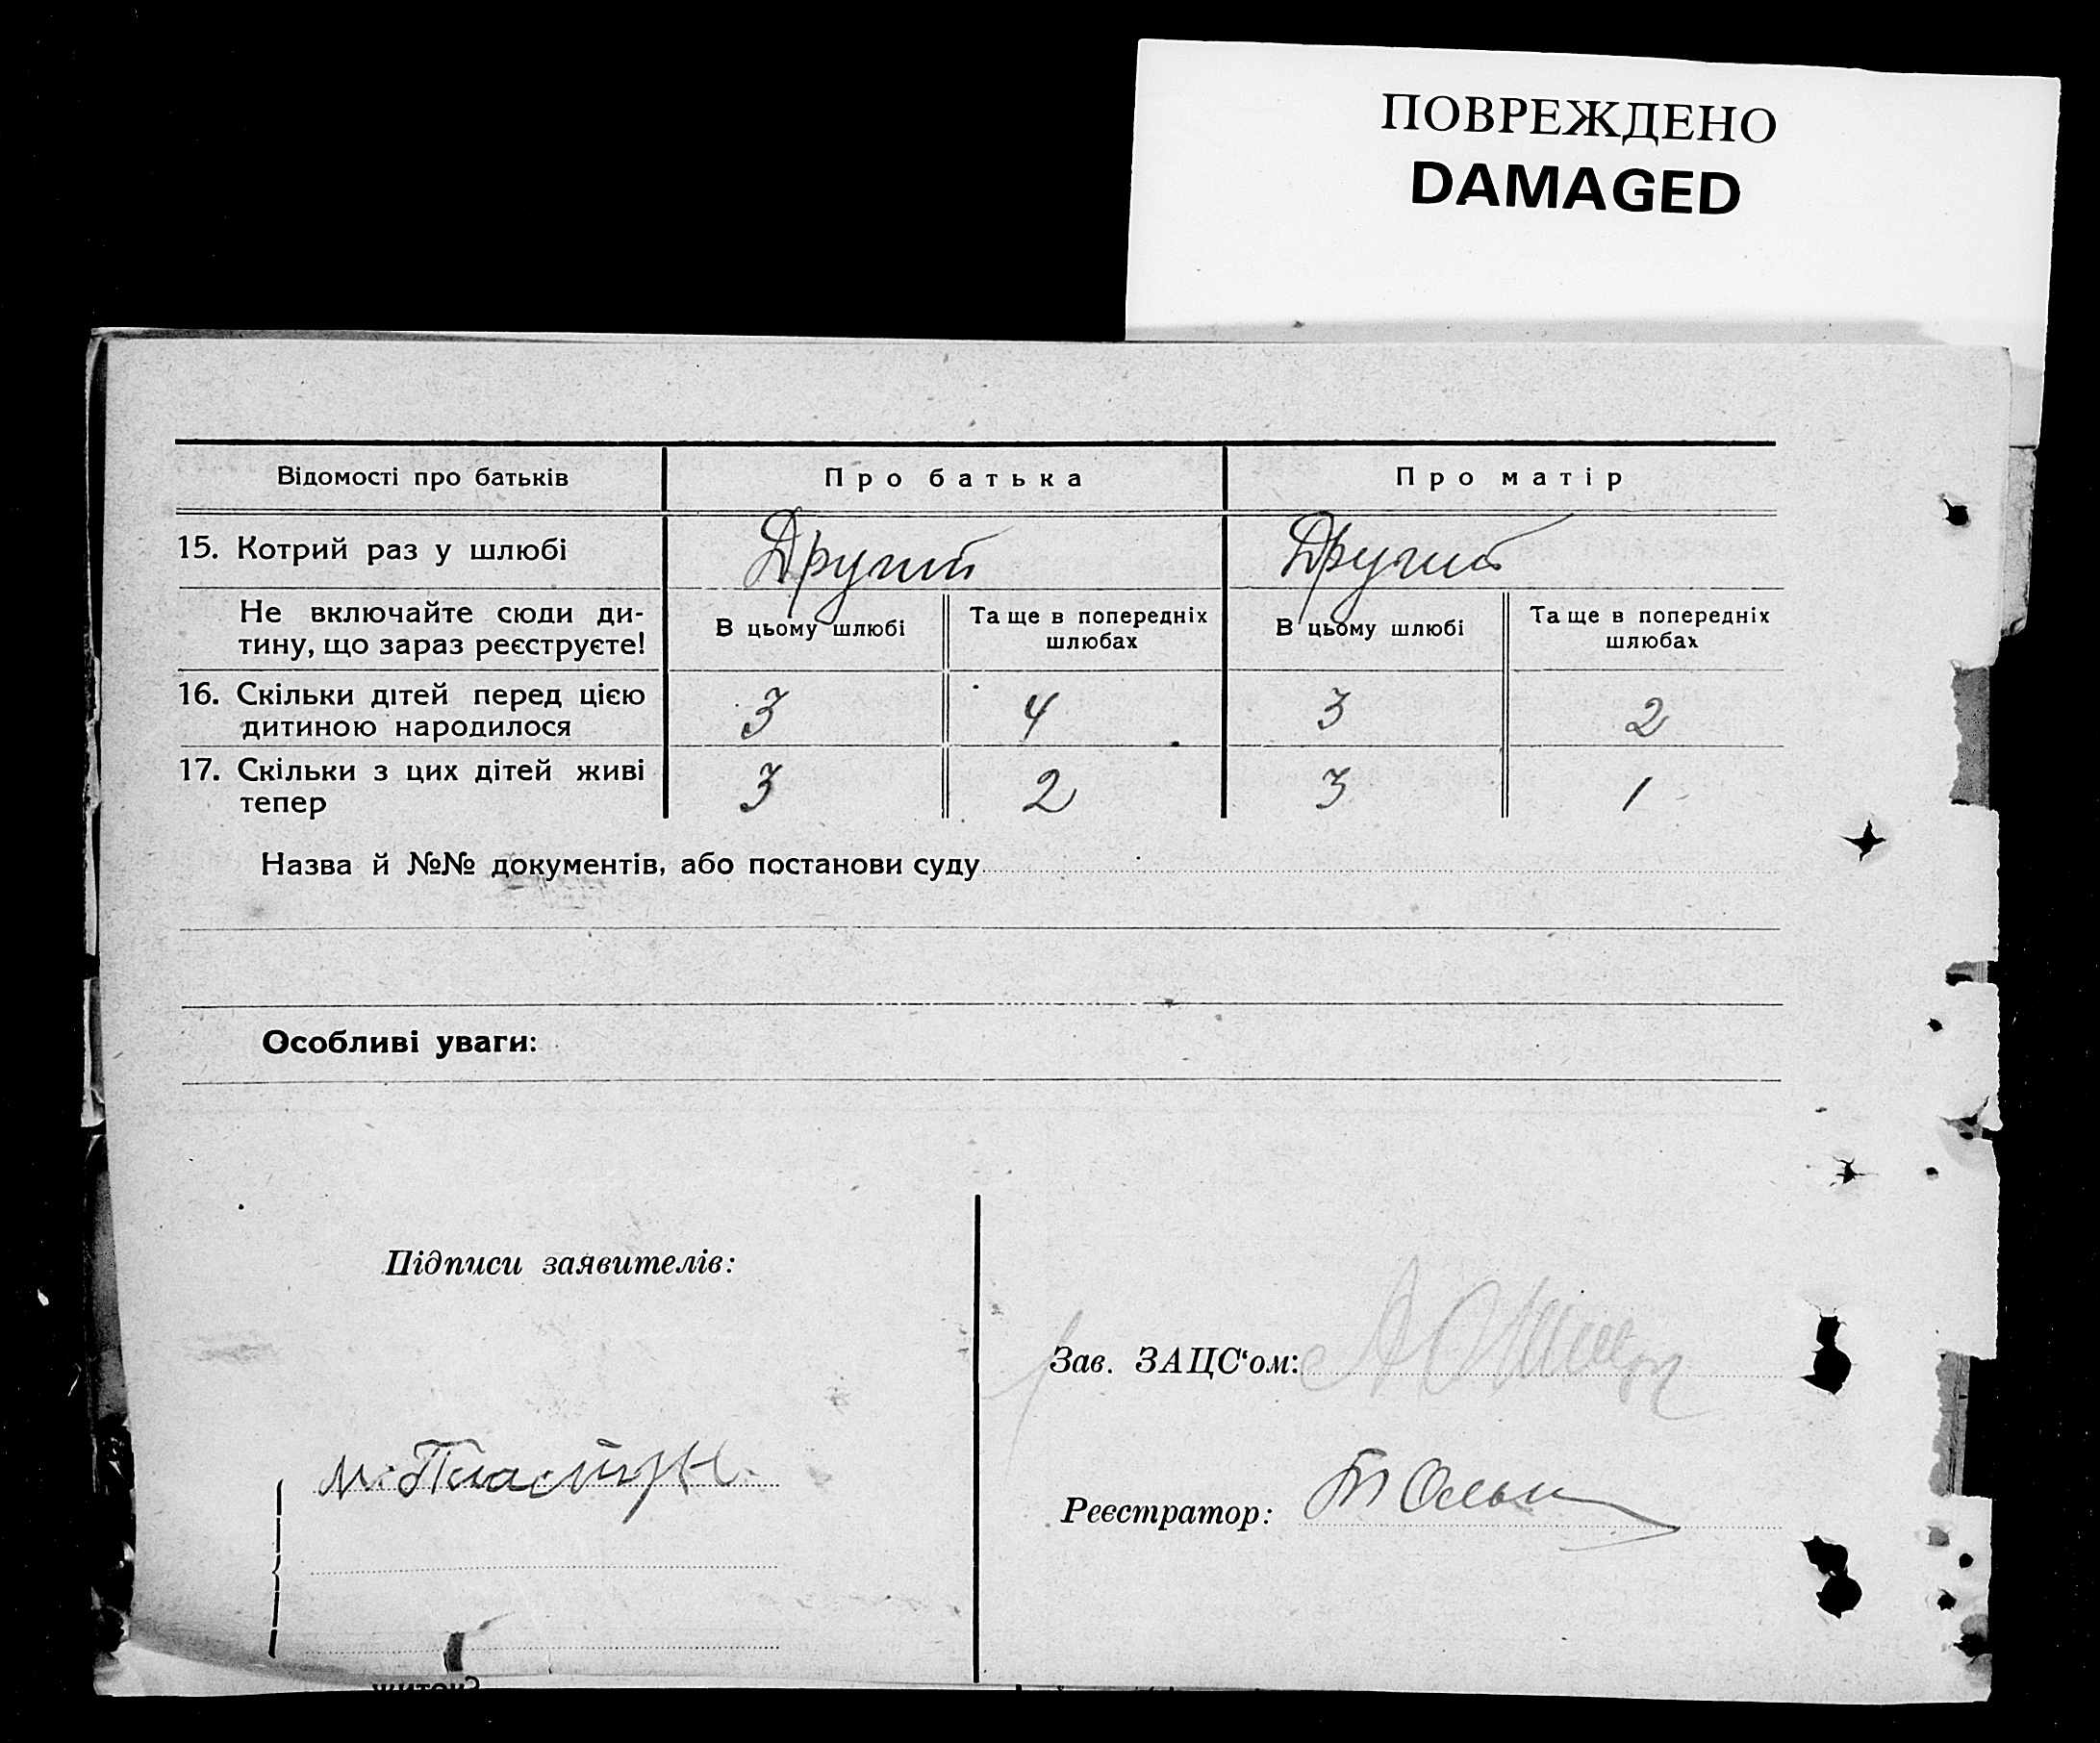 ПОВРЕЖДЕНО
DAMAGED
Відомості про батьків
Про батька
Про матір
15. Котрий раз у шлюбі
Другий
Другий
Не включайте сюди ди-
тину, що зараз реєструєте!
В цьому шлюбі
Та ще в попередніх
шлюбах
В цьому шлюбі
Та ще в попередніх
шлюбах
16. Скільки дітей перед цією
дитиною народилося
3
4
3
2
17. Скільки з цих дітей живі
тепер
3
2
3
1
Назва й №№ документів, або постанови суду
Особливі уваги:
Підписи заявителів:
Зав. ЗАЦС‘ом:
М.
Реєстратор: